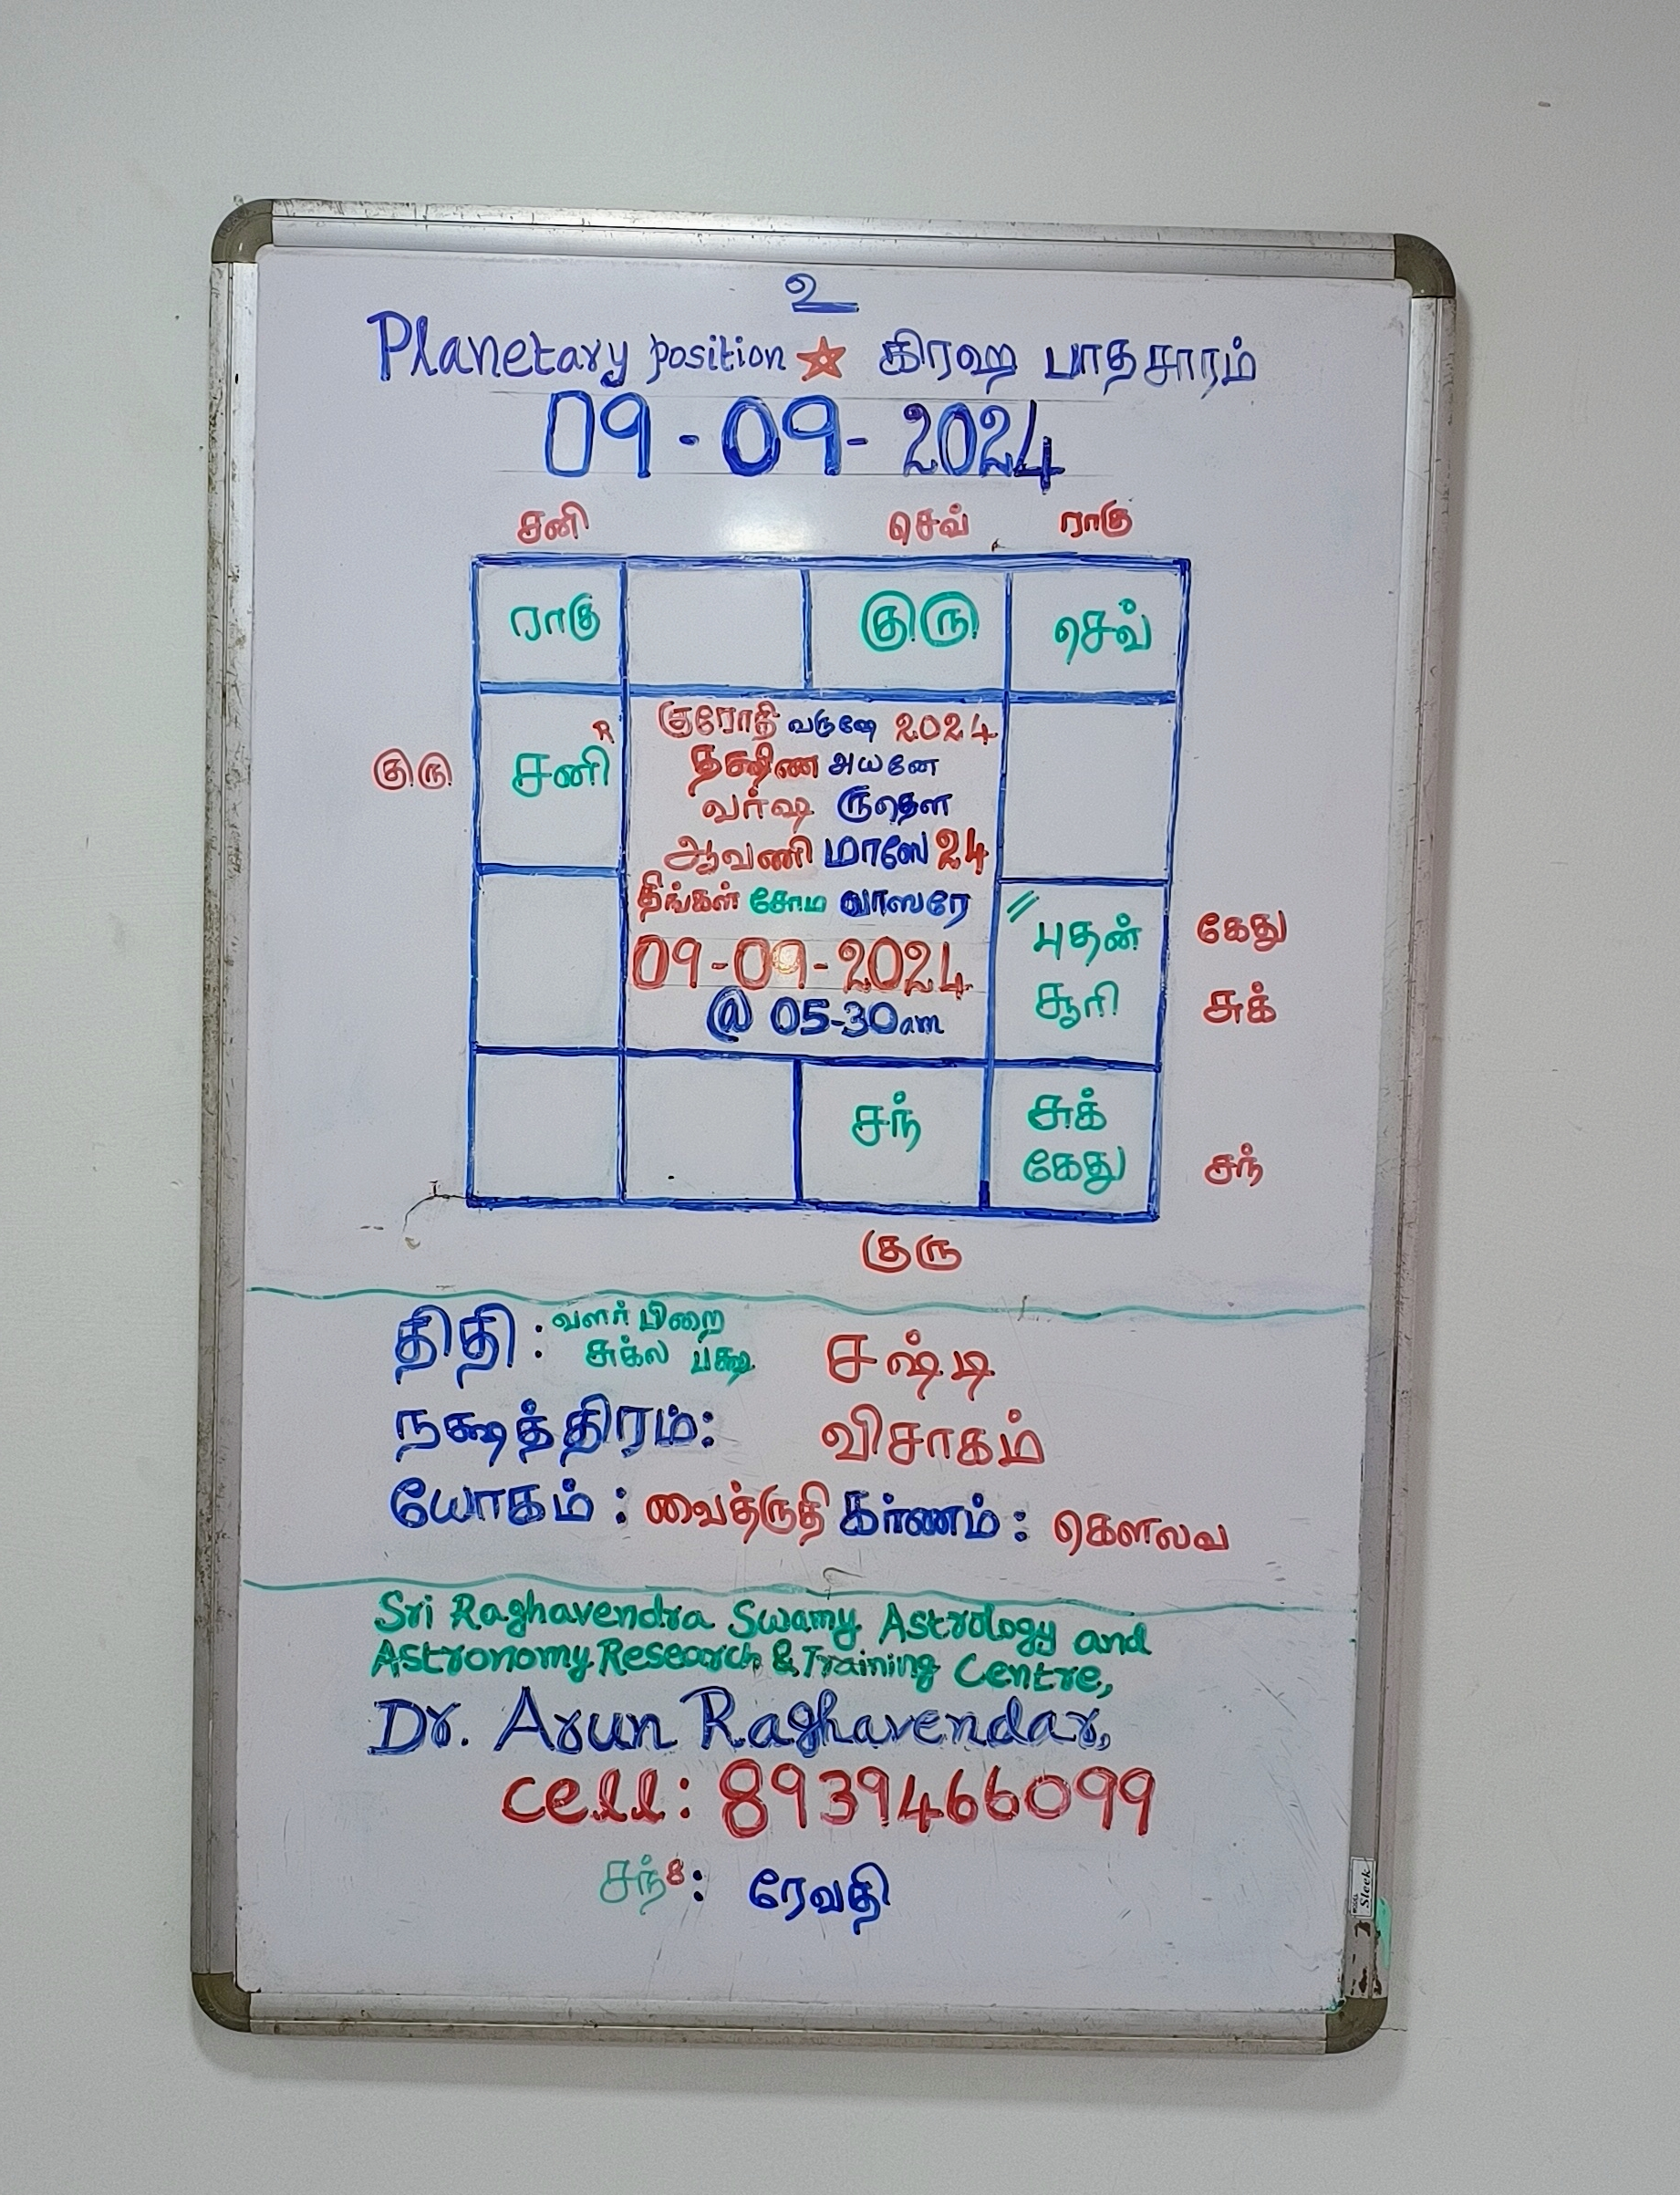 உ
Planetary position கிரஹ பாதசாரம்
09-09-2024
சனி செவ் ராகு
ராகு குரு செவ்
குரு சனி R
குரோதி வருஷே 2024
தக்ஷிண அயனே
வர்ஷ ருதௌ
ஆவணி மாஸே 24
திங்கள் சோம வாஸரே
09-09-2024
@ 05-30am
புதன் கேது
சூரி சுக்
சந் சுக்
கேது சந்
குரு
திதி: வளர்பிறை
சுக்ல பக்ஷ சஷ்டி
நக்ஷத்திரம்: விசாகம்
யோகம்: வைத்ருதி கர்ணம்: கௌலவ
Sri Raghavendra Swamy Astrology and
Astronomy Research & Training Centre,
Dr. Arun Raghavendar,
cell: 8939466099
சந் 8: ரேவதி
Sleek